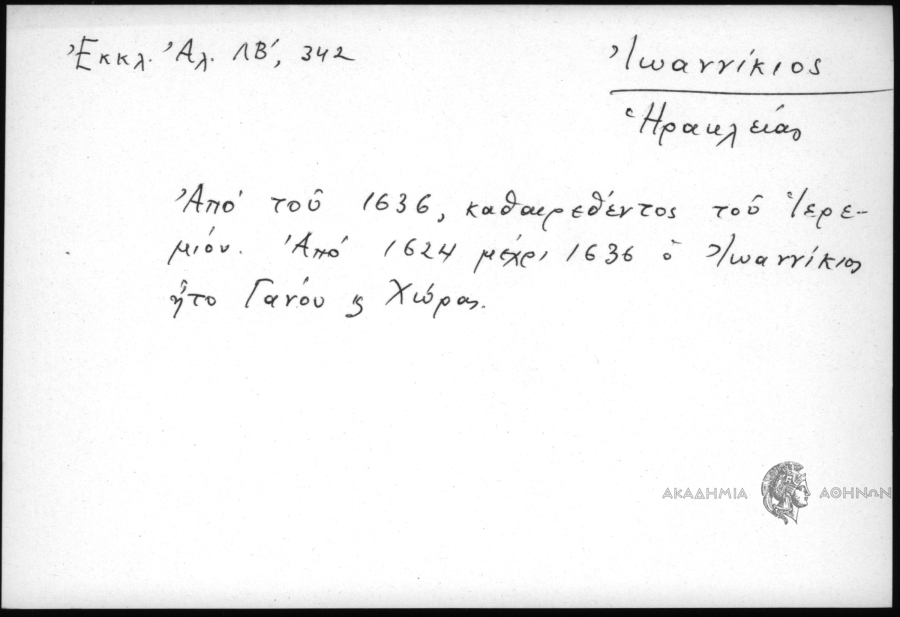 Ἐκκλ. Ἀλ. ΛΒ', 342
Ἰωαννίκιος
Ἡρακλείας
Ἀπὸ τοῦ 1636, καθαιρεθέντος τοῦ Ἱερε-
μίου. Ἀπὸ 1624 μέχρι 1636 ὁ Ἰωαννίκιος
ἦτο Γάνου ϗ Χώρας.
ΑΚΑΔΗΜΙΑ ΑΘΗΝΩΝ